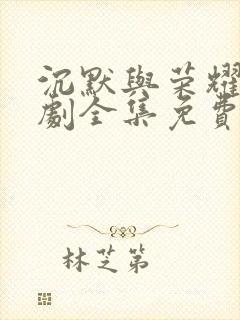 沉默與榮耀
劇全集免費
林芝第